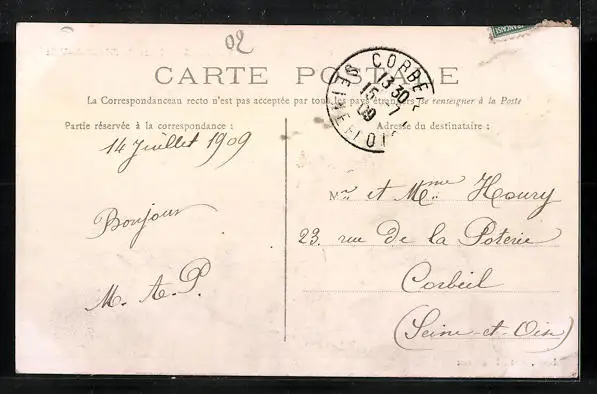 02
FRANÇAISE
CARTE POSTALE
La Correspondance au recto n'est pas acceptée par tous les pays étrangers (se renseigner à la Poste
Partie réservée à la correspondance :
Adresse du destinataire :
CORBEIL
13 30
15 - 7
09
SEINE-ET-OISE
14 Juillet 1909
Bonjour
M. A. P.
Mr. et Mme Houry
23. rue de la Poterie
Corbeil
(Seine-et-Oise)